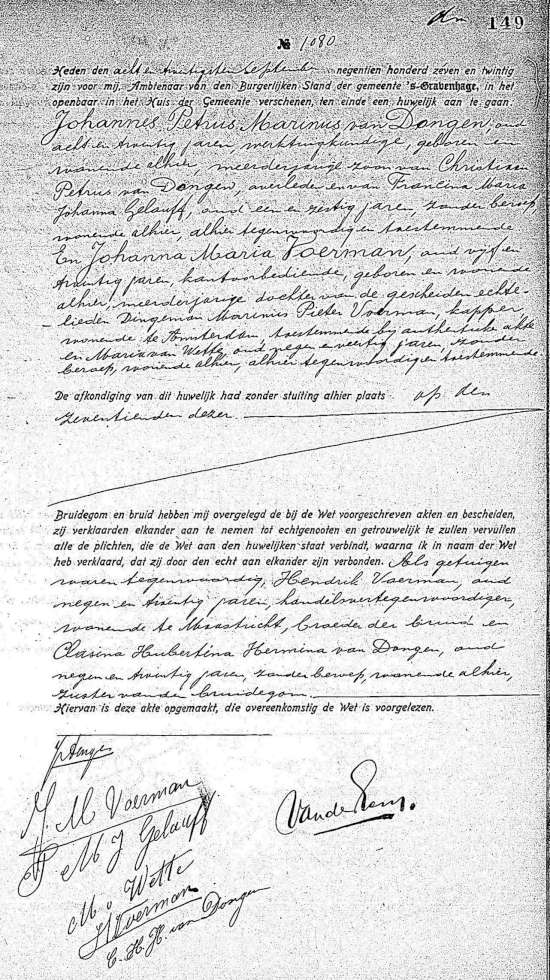 149
№ 1080
Heden den acht en twintigsten September negentien honderd zeven en twintig
zijn voor mij, Ambtenaar van den Burgerlijken Stand der gemeente 's-Gravenhage, in het
openbaar in het Huis der Gemeente verschenen, ten einde een huwelijk aan te gaan.
Johannes Petrus Marinus van Dongen, oud
acht en twintig jaren, werktuigkundige, geboren en
wonende alhier, meerderjarige zoon van Christiaan
Petrus van Dongen, overleden en van Francina Maria
Johanna Gelauff, oud een en zestig jaren, zonder beroep,
wonende alhier, alhier tegenwoordig en toestemmende
En Johanna Maria Voerman, oud vijf en
twintig jaren, kantoorbediende, geboren en wonende
alhier, meerderjarige dochter van de gescheiden echte-
lieden Dingeman Marinus Pieter Voerman, kapper,
wonende te Amsterdam, toestemmende bij authentieke akte
en Maria van Wette, oud negen en veertig jaren, zonder
beroep, wonende alhier, alhier tegenwoordig en toestemmende
De afkondiging van dit huwelijk had zonder stuiting alhier plaats op den
zeventienden dezer.
Bruidegom en bruid hebben mij overgelegd de bij de Wet voorgeschreven akten en bescheiden,
zij verklaarden elkander aan te nemen tot echtgenooten en getrouwelijk te zullen vervullen
alle de plichten, die de Wet aan den huwelijken staat verbindt, waarna ik in naam der Wet
heb verklaard, dat zij door den echt aan elkander zijn verbonden. Als getuigen
waren tegenwoordig, Hendrik Voerman, oud
negen en twintig jaren, handelsvertegenwoordiger,
wonende te Maastricht, broeder der bruid en
Clasina Hubertina Hermina van Dongen, oud
negen en twintig jaren, zonder beroep, wonende alhier,
zuster van den bruidegom.
Hiervan is deze akte opgemaakt, die overeenkomstig de Wet is voorgelezen.
J. M Voerman
F M J Gelauff
M. v Wette
H Voerman
C. H. H. van Dongen